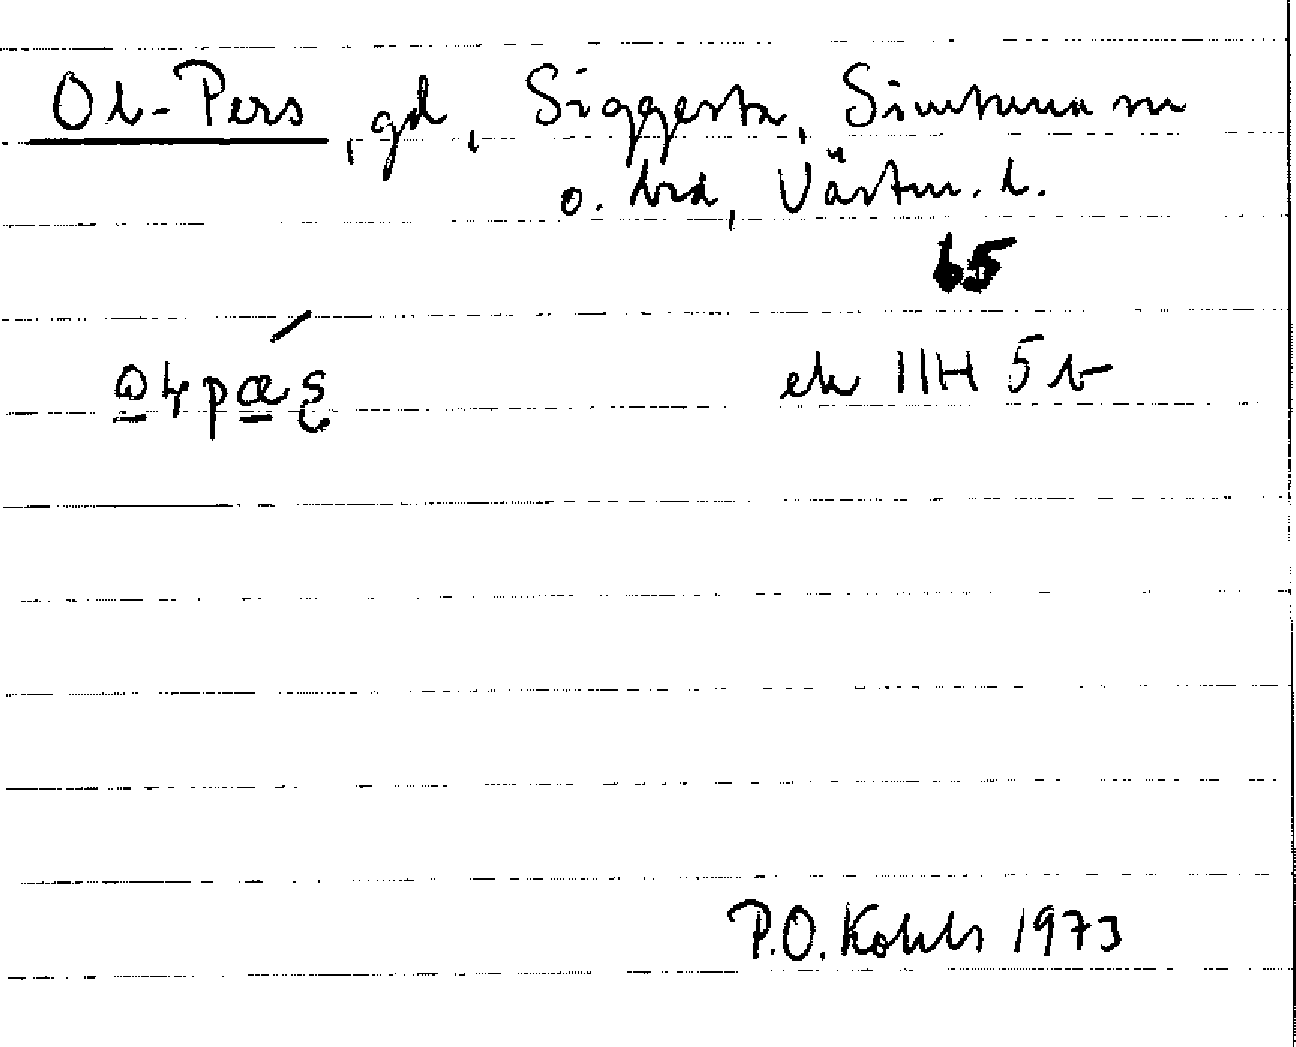 Ol-Pers, gd, Siggesta, Simtuna sn
o. hrd, Västm. l.
65
ek 11H 5 b
P.O. Kohls 1973